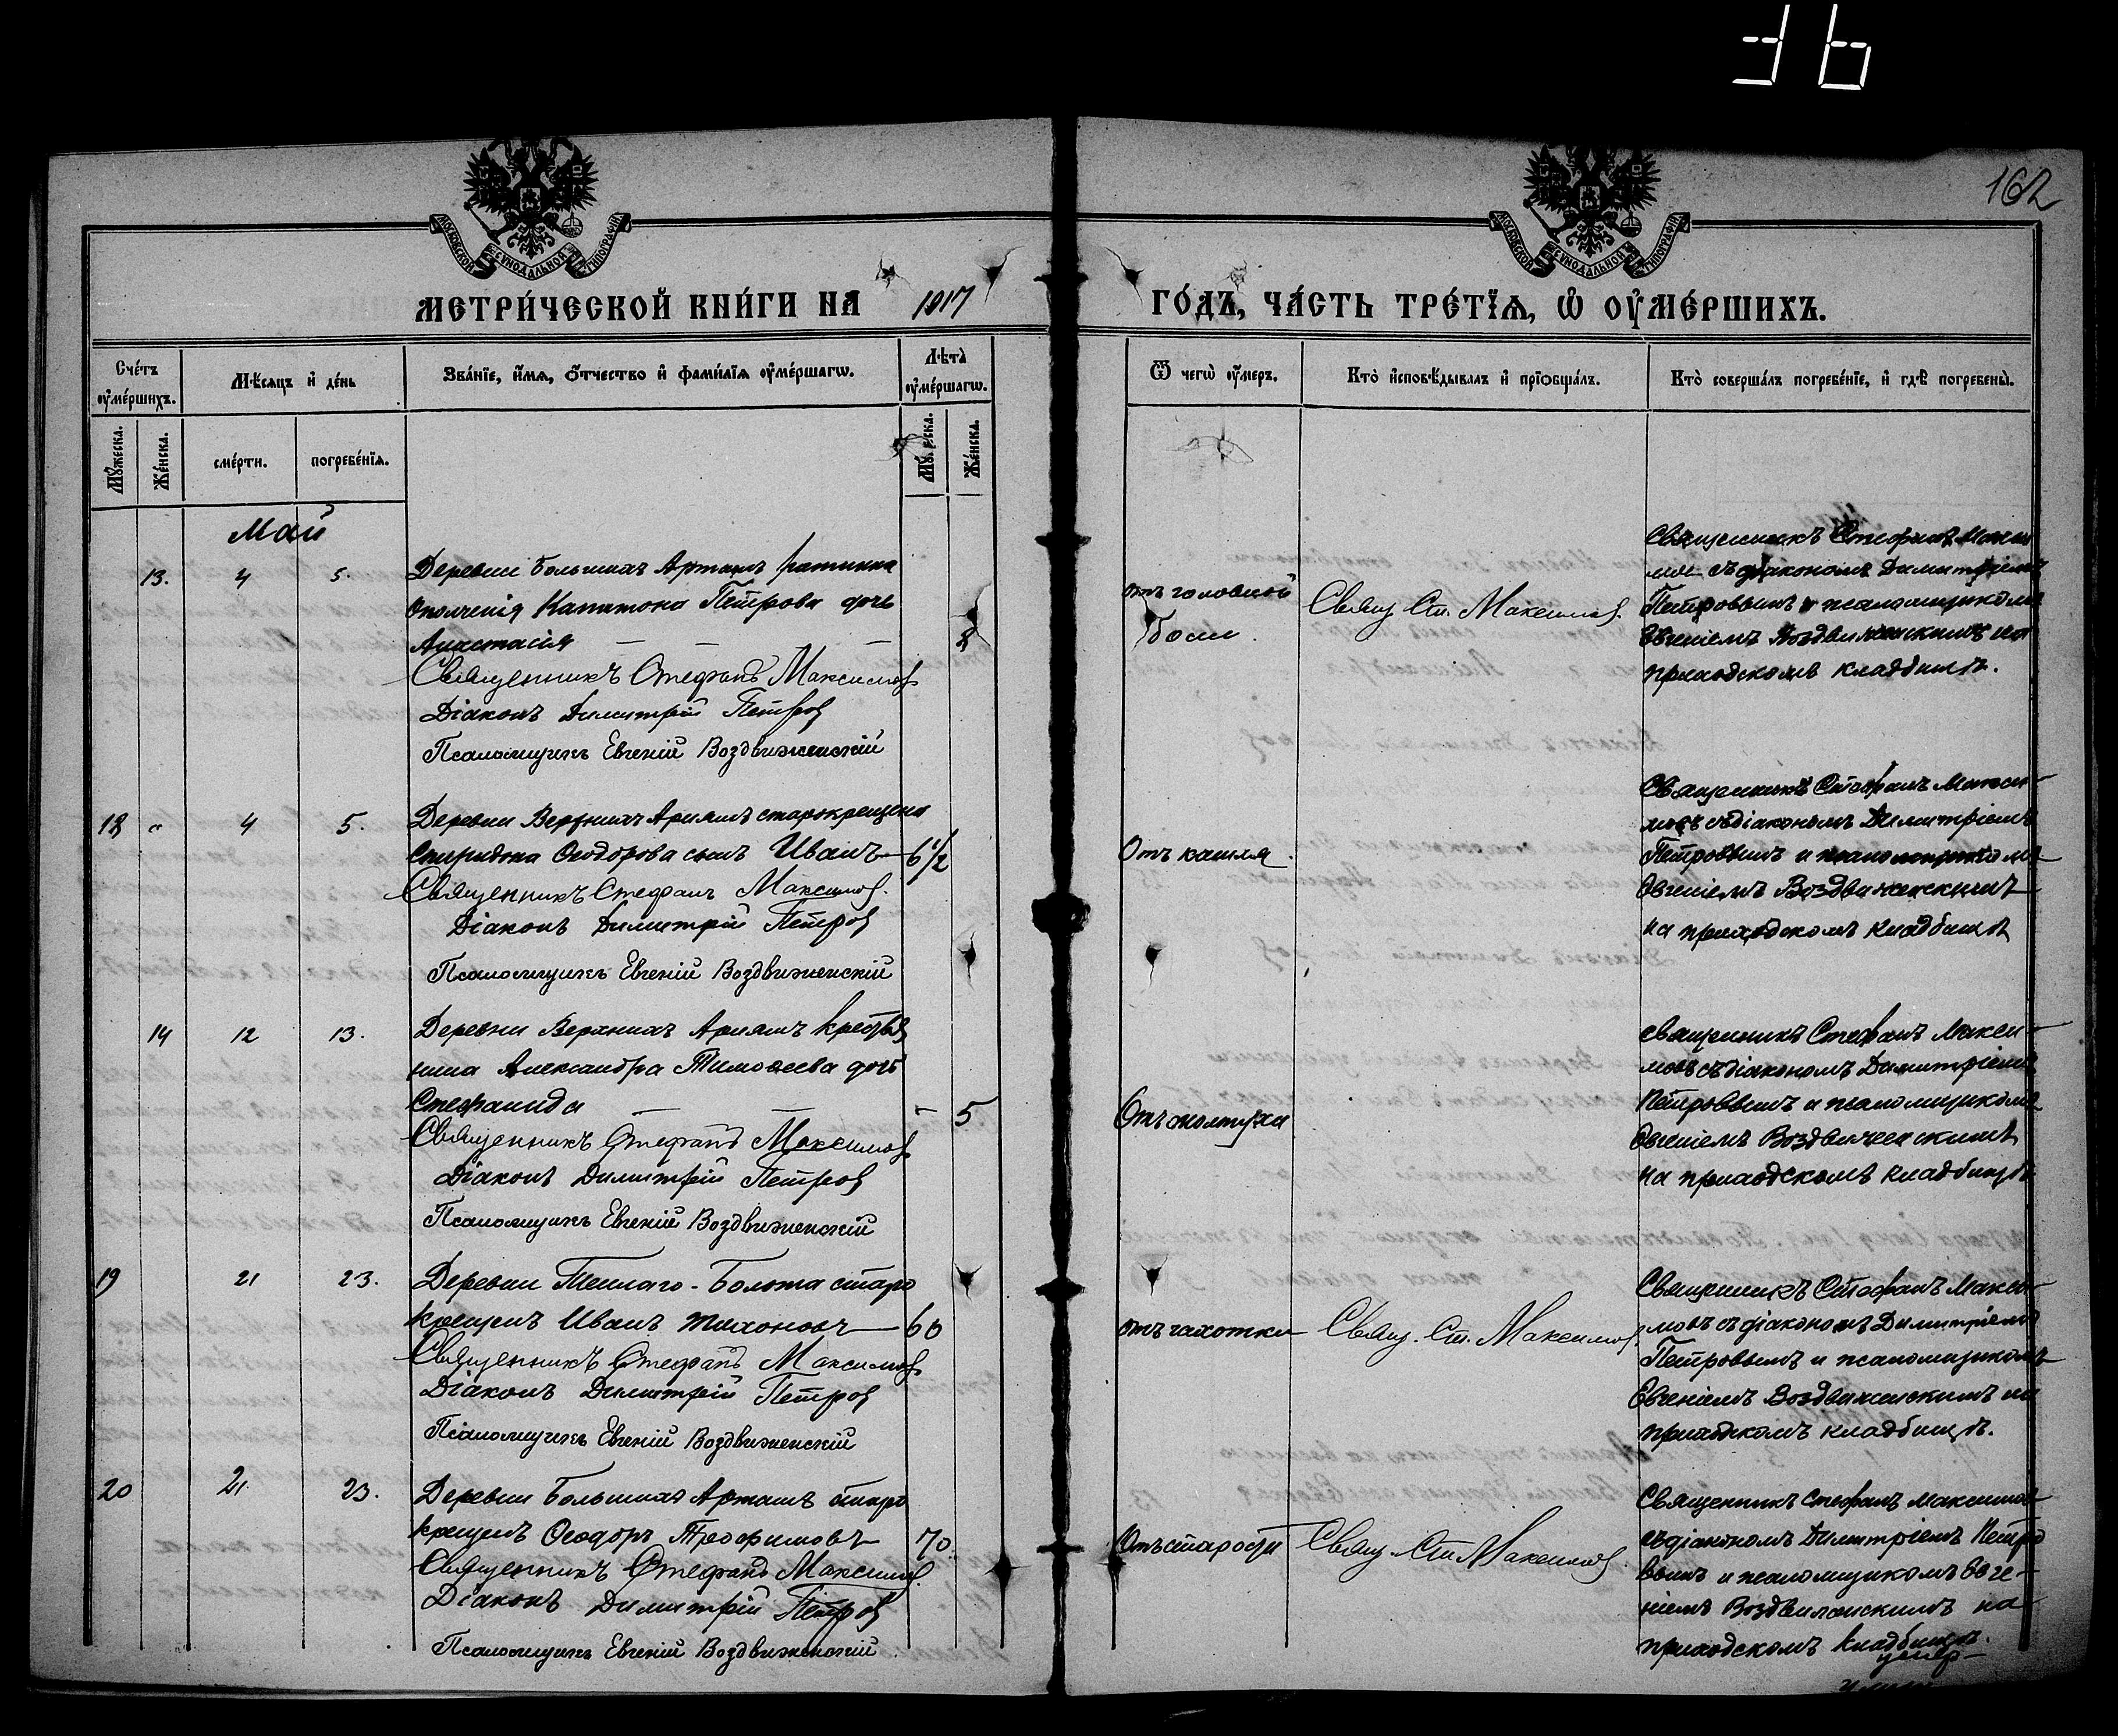 36
162
МОСКОВСКОЙ СѴНОДАЛЬНОЙ ТИПОГРАФІИ
МОСКОВСКОЙ СѴНОДАЛЬНОЙ ТИПОГРАФІИ
МЕТРИ́ЧЕСКОЙ КНИ́ГИ НА 1917 ГО́ДЪ, ЧА́СТЬ ТРЕ́ТЇѦ, Ѿ ОУ҆МЕ́РШИХЪ.
Сче́тъ оу҆ме́ршихъ.
Мѣ́сяцъ и҆ де́нь
Зва́нїе, и҆́мя, ѻ҆́тчество и҆ фами́лїя оу҆ме́ршагѡ.
Лѣ́та оу҆ме́ршагѡ.
Ѿ чегѡ̀ оу҆́меръ.
Кто̀ и҆сповѣ́дывалъ и҆ прїѡбща́лъ.
Кто̀ соверша́лъ погребе́нїе, и҆ гдѣ̀ погребены̀.
Мꙋ́жеска.
Же́нска.
сме́рти.
погребе́нїя.
Же́нска.
Май
13. 4 5.
Деревни Большихъ Арташъ ратника
ополченія Капитона Петрова дочь
Анастасія
Священникъ Стефанъ Максимов
Діаконъ Димитрій Петров
Псаломщикъ Евгеній Воздвиженскій
отъ головной
боли.
Свящ Ст. Максимов.
Священникъ Стефанъ Макси
мов съ діакономъ Димитріемъ
Петровымъ и псаломщикомъ
Евгеніемъ Воздвиженскимъ на
приходскомъ кладбищѣ.
18 " 4 5.
Деревни Верхнихъ Арнашъ старокрещена
Спиридона Ѳеодорова сынъ Иванъ 6 1/2
Священникъ Стефанъ Максимов.
Діаконъ Димитрій Петров
Псаломщикъ Евгеній Воздвиженскій
Отъ кашля.
Священникъ Стефанъ Макси-
мовъ съ діакономъ Димитріемъ
Петровымъ и псаломщикомъ
Евгеніемъ Воздвиженскимъ
на приходскомъ кладбищѣ
14 12 13.
Деревни Верхнихъ Арнашъ крестья
нина Александра Тимоѳеева дочь
Стефанида - 5
Священникъ Стефанъ Максимов
Діаконъ Димитрій Петров
Псаломщикъ Евгеній Воздвиженскій
Отъ
священникъ Стефанъ Макси-
мовъ съ діакономъ Димитріемъ
Петровымъ и псаломщикомъ
Евгеніемъ Воздвиженскимъ
на приходскомъ кладбищѣ
19 21 23.
Деревни Теплаго-Болота старо
крещенъ Иванъ Тихоновъ 60
Священникъ Стефанъ Максимов
Діаконъ Димитрій Петров
Псаломщикъ Евгеній Воздвиженскій
отъ чахотки
Свящ. Ст. Максимов.
Священникъ Стефанъ Макси-
мовъ съ діакономъ Димитріемъ
Петровымъ и псаломщикомъ
Евгеніемъ Воздвиженскимъ на
приходскомъ кладбищѣ.
20 21. 23.
Деревни Большихъ Арташъ старо
крещенъ Ѳеодоръ Трофимовъ 70
Священникъ Стефанъ Максимов.
Діаконъ Димитрій Петров
Псаломщикъ Евгеній Воздвиженскій
Отъ старости
Свящ. Ст. Максимов.
Священникъ Стефанъ Максимов
съ діакономъ Димитріемъ Петро
вымъ и псаломщикомъ Евге-
ніемъ Воздвиженскимъ на
приходскомъ кладбищѣ.